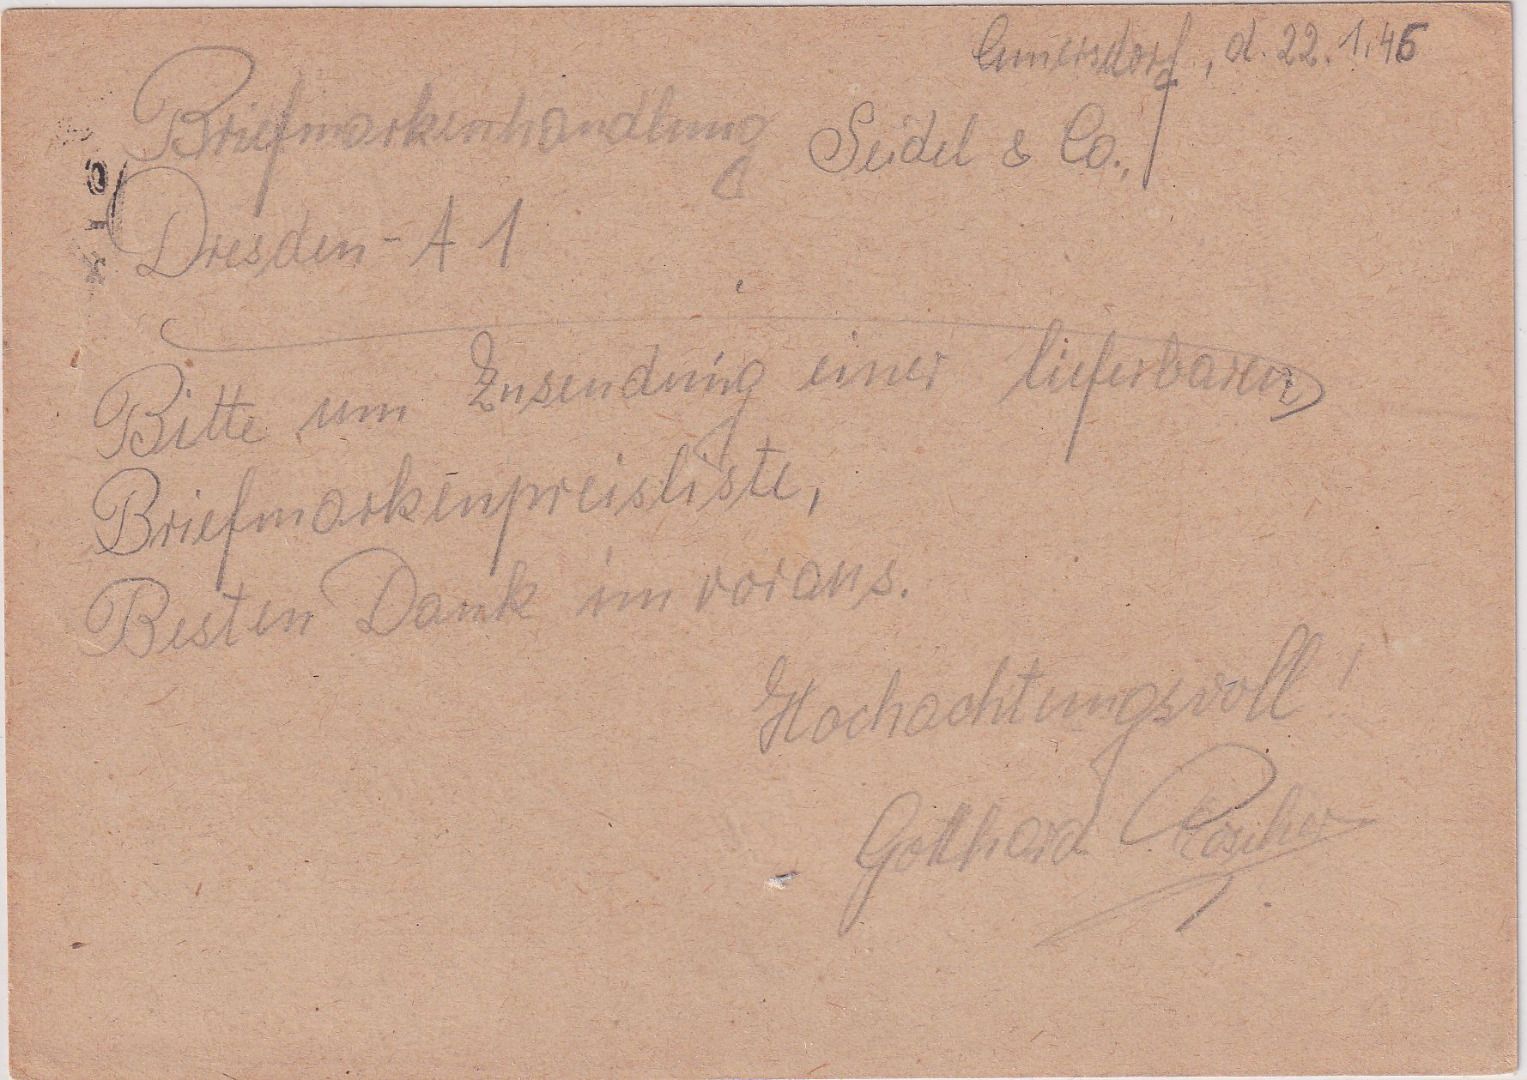 Cunersdorf, d. 22.1.46
Briefmarkenhandlung Seidel & Co.,
Dresden-A 1
Bitte um Zusendung einer lieferbaren
Briefmarkenpreisliste,
Besten Dank im voraus.
Hochachtungsvoll!
Gotthard